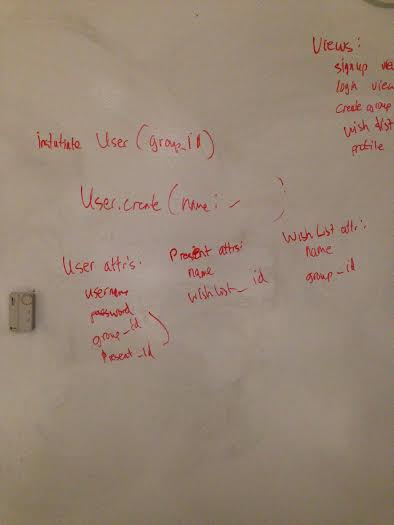 Views:
signup view
login view
create group
wish list
profile
instatiate User (group_id)
User.create (name:     )
User attr's:
username
password
group_id
present_id
Present attrs:
name
wishlist_id
Wish List attr:
name
group_id